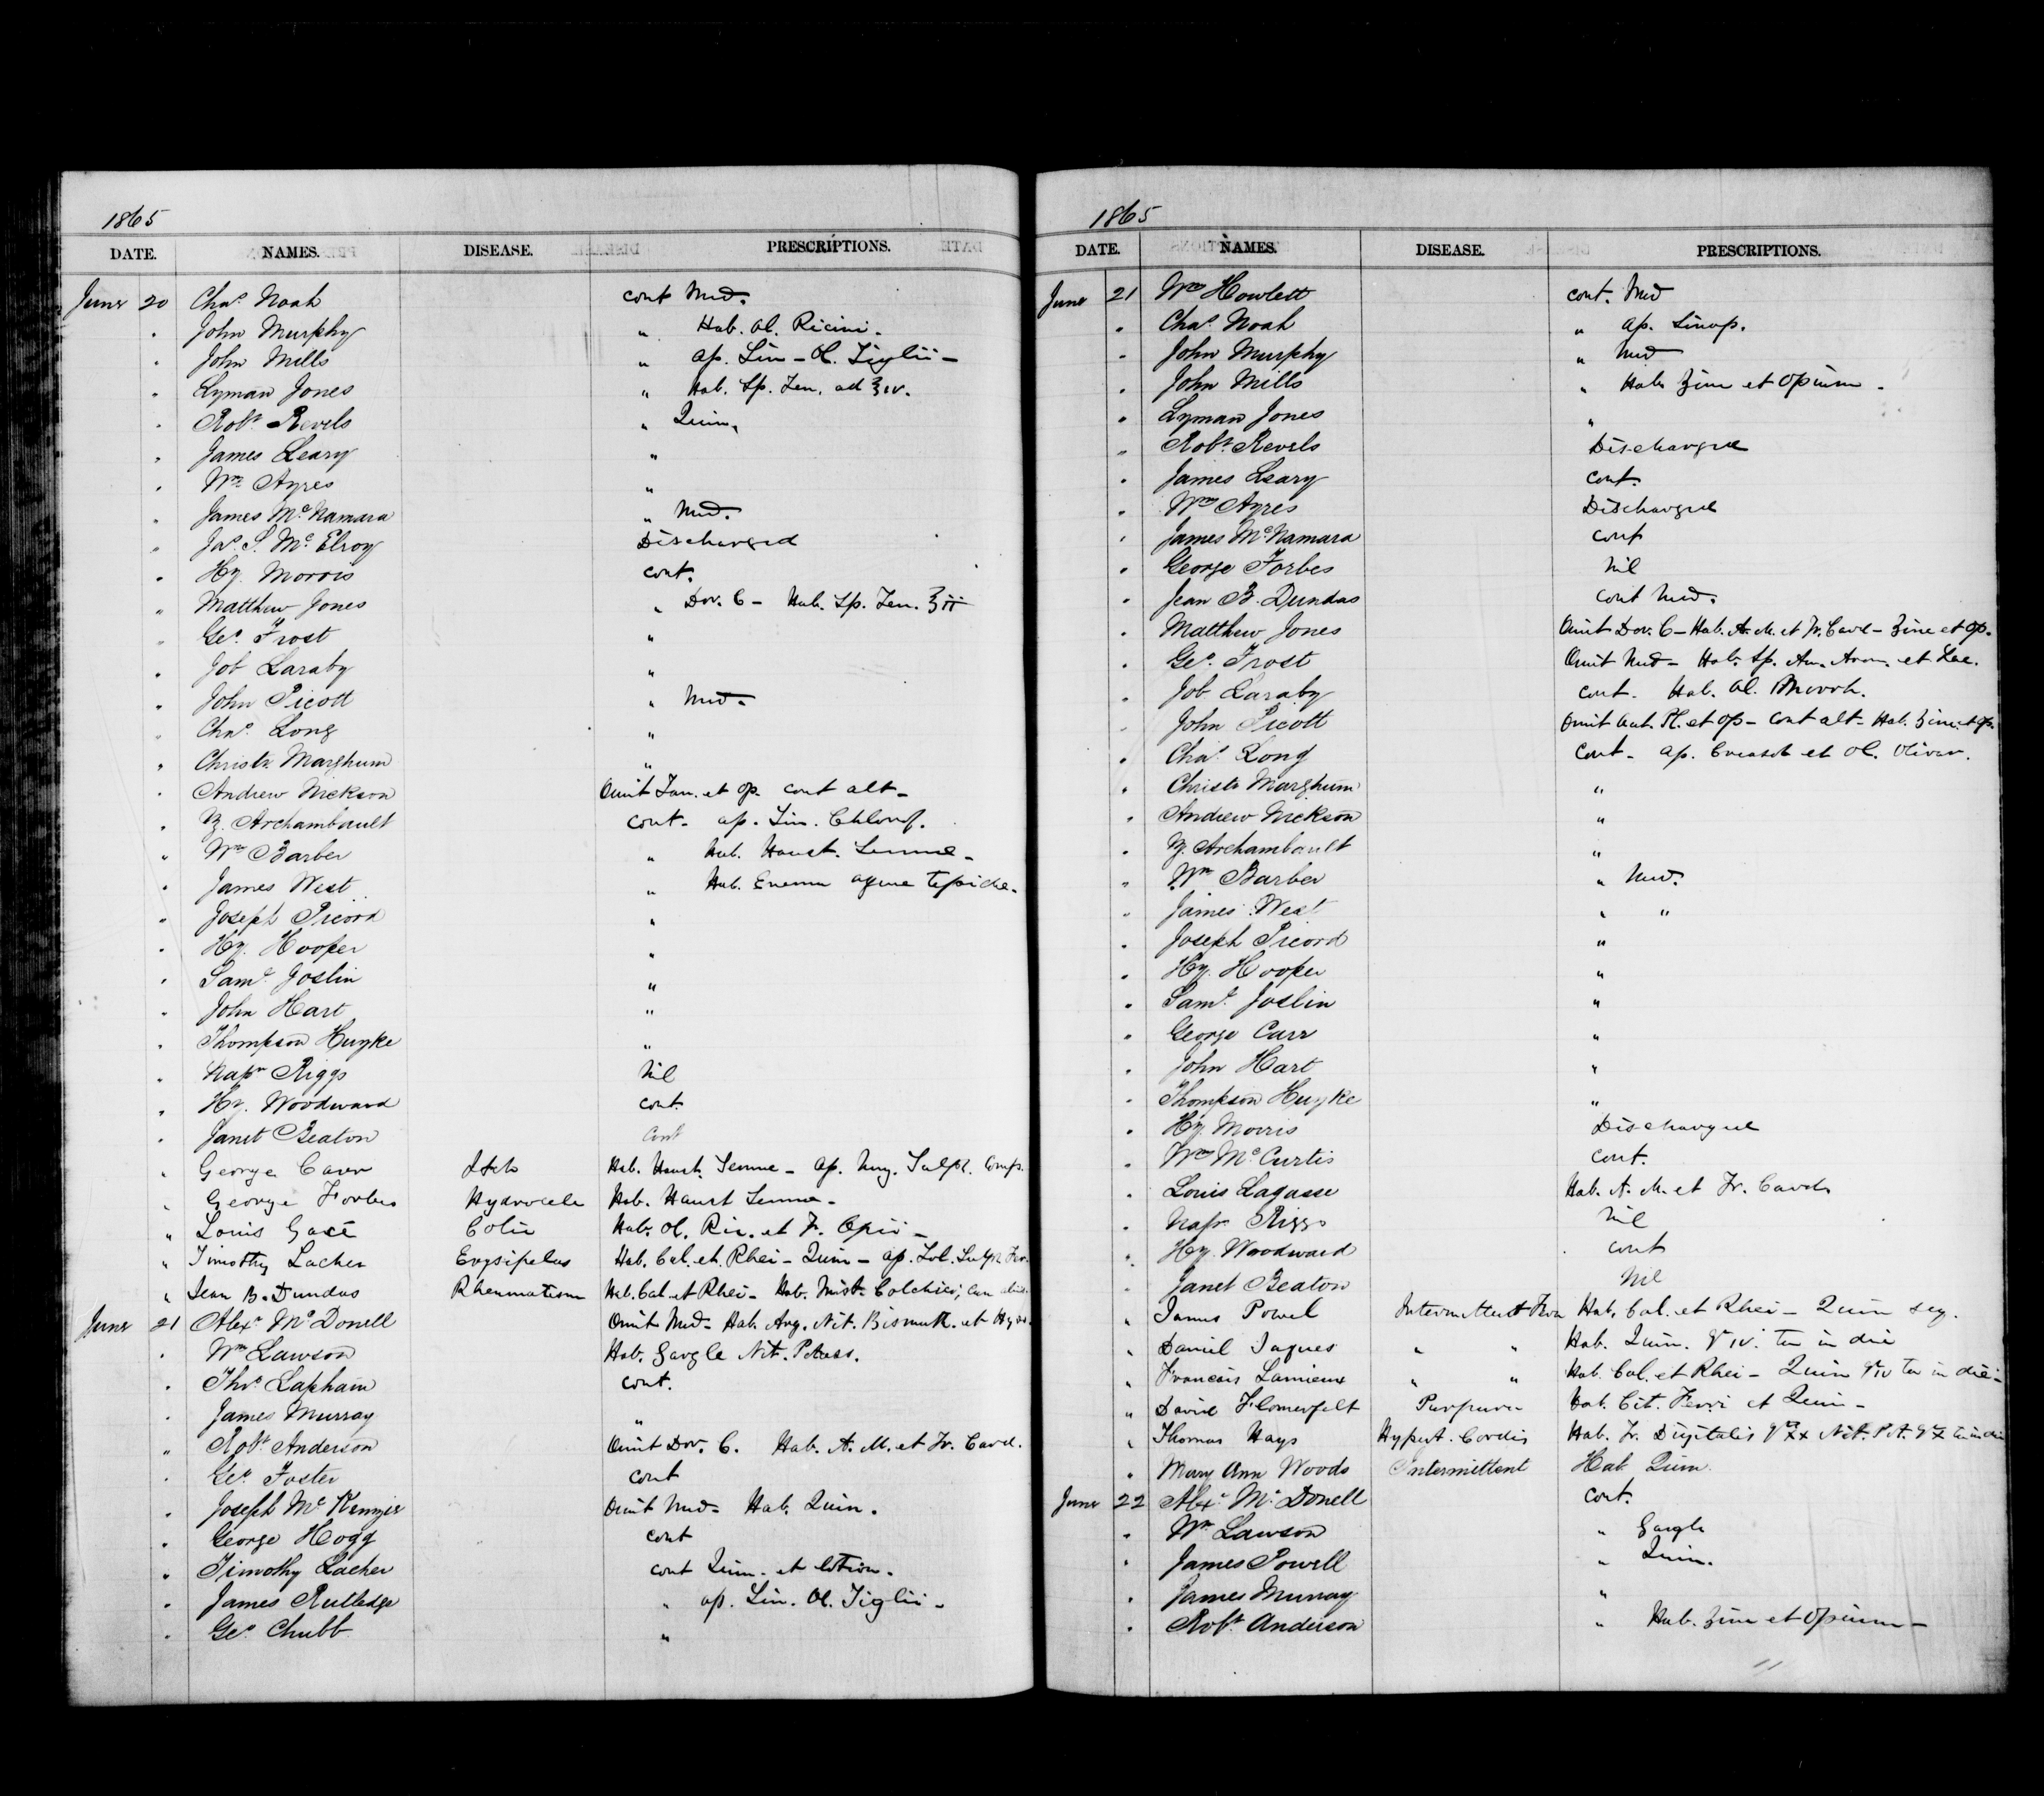 1865
DATE. NAMES. DISEASE. PRESCRIPTIONS.
June 20 Chas. Noah cont Med.
" John Murphy " Hab. Ol. Ricini.
" John Mills " ap. Lin - Ol. Tiglii -
" Lyman Jones " Hab. Sp. Jen. ad ℥iv.
" Robt. Revels " Quin.
" James Leary "
" Wm. Ayres "
" James McNamara " Med.
" Jas. S. McElroy Discharged
" Hy. Morris cont.
" Matthew Jones " Dov. C - Hab. Sp. Jen. ℥ii
" Geo. Frost "
" Job Laraby "
" John Picott " Med -
" Chas. Long "
" Christr. Marghum "
" Andrew Nickson Omit Tan. et Op. cont alt -
" Z. Archambault cont - ap. Lin. Chlorof.
" Wm Barber " Hab. Haust. Sennae -
" James West " Hab. Enema aquae tepidae.
" Joseph Picord "
" Hy. Hooper "
" Saml. Joslin "
" John Hart "
" Thompson Huyke "
" Napn. Riggs Nil
" Hy. Woodward cont.
" Janet Beaton Cont
" George Carr Itch Hab. Haust. Sennae - ap. Ung. Sulph. Comp.
" George Forbes Hydrocele Hab. Haust Sennae -
" Louis Gacé Colic Hab. Ol. Ric. et Tr. Opii -
" Timothy Lacher Erysipelas Hab. Cal. et Rhei - Quin - ap. Sol. Sulph Fer.
" Jean B. Dundas Rheumatism Hab. Cal. et Rhei - Hab. Mist. Colchici;
June 21 Alexr. McDonell Omit Med - Hab. Arg. Nit. Bismuth. et Hyos.
" Wm Lawson Hab. Gargle Nit. Potass.
" Thos. Lapham cont.
" James Murray "
" Robt. Anderson Omit Dov. C. Hab. A. M. et Tr. Card.
" Geo. Foster cont
" Joseph McKenzie Omit Med - Hab. Quin.
" George Hogg cont
" Timothy Lacher cont Quin. et lotion.
" James Rutledge " ap. Lin. Ol. Tiglii -
" Geo. Chubb "
1865
DATE. NAMES. DISEASE. PRESCRIPTIONS.
June 21 Wm Howlett cont. Med
" Chas. Noah " ap. Sinap.
" John Murphy " Med
" John Mills " Hab. Zinc et Opium -
" Lyman Jones "
" Robt. Revels Discharged
" James Leary cont.
" Wm Ayres Discharged
" James McNamara cont
" George Forbes Nil
" Jean B. Dundas cont Med.
" Matthew Jones Omit Dov. C - Hab. A. M. et Tr. Card - Zinc et Op.
" Geo. Frost Omit Med - Hab. Sp. Am. Arom. et Lac.
" Job Laraby cont. Hab. Ol. Morrh.
" John Picott Omit Act. Pl. et Op - cont alt - Hab. Zinc et Op.
" Chas. Long Cont - ap. Creasot et Ol. Olivar.
" Christr Marghum "
" Andrew Nickson "
" Z. Archambault "
" Wm Barber " Med.
" James West " "
" Joseph Picord "
" Hy. Hooper "
" Saml. Joslin "
" George Carr "
" John Hart "
" Thompson Huyke "
" Hy. Morris Discharged
" Wm McCurtis cont.
" Louis Lagasse Hab. A. M. et Tr. Card
" Napn. Riggs Nil
" Hy. Woodward cont
" Janet Beaton Nil
" James Powel Intermittent Fever Hab. Cal. et Rhei - Quin seq.
" Daniel Jaques " " Hab. Quin. gr iv. ter in die
" Francois Lamieux " " Hab. Cal. et Rhei - Quin gr iv ter in die -
" David Flomerfelt Purpura Hab. Cit. Ferri et Quin -
" Thomas Hays Hypert. Cordis Hab. Tr. Digitalis gtt x Nit. Pot. gr x ter in die
" Mary Ann Woods Intermittent Hab Quin.
June 22 Alexr. McDonell cont.
" Wm Lawson " Gargle
" James Powell " Quin.
" James Murray "
" Robt. Anderson " Hab. Zinc et Opium -